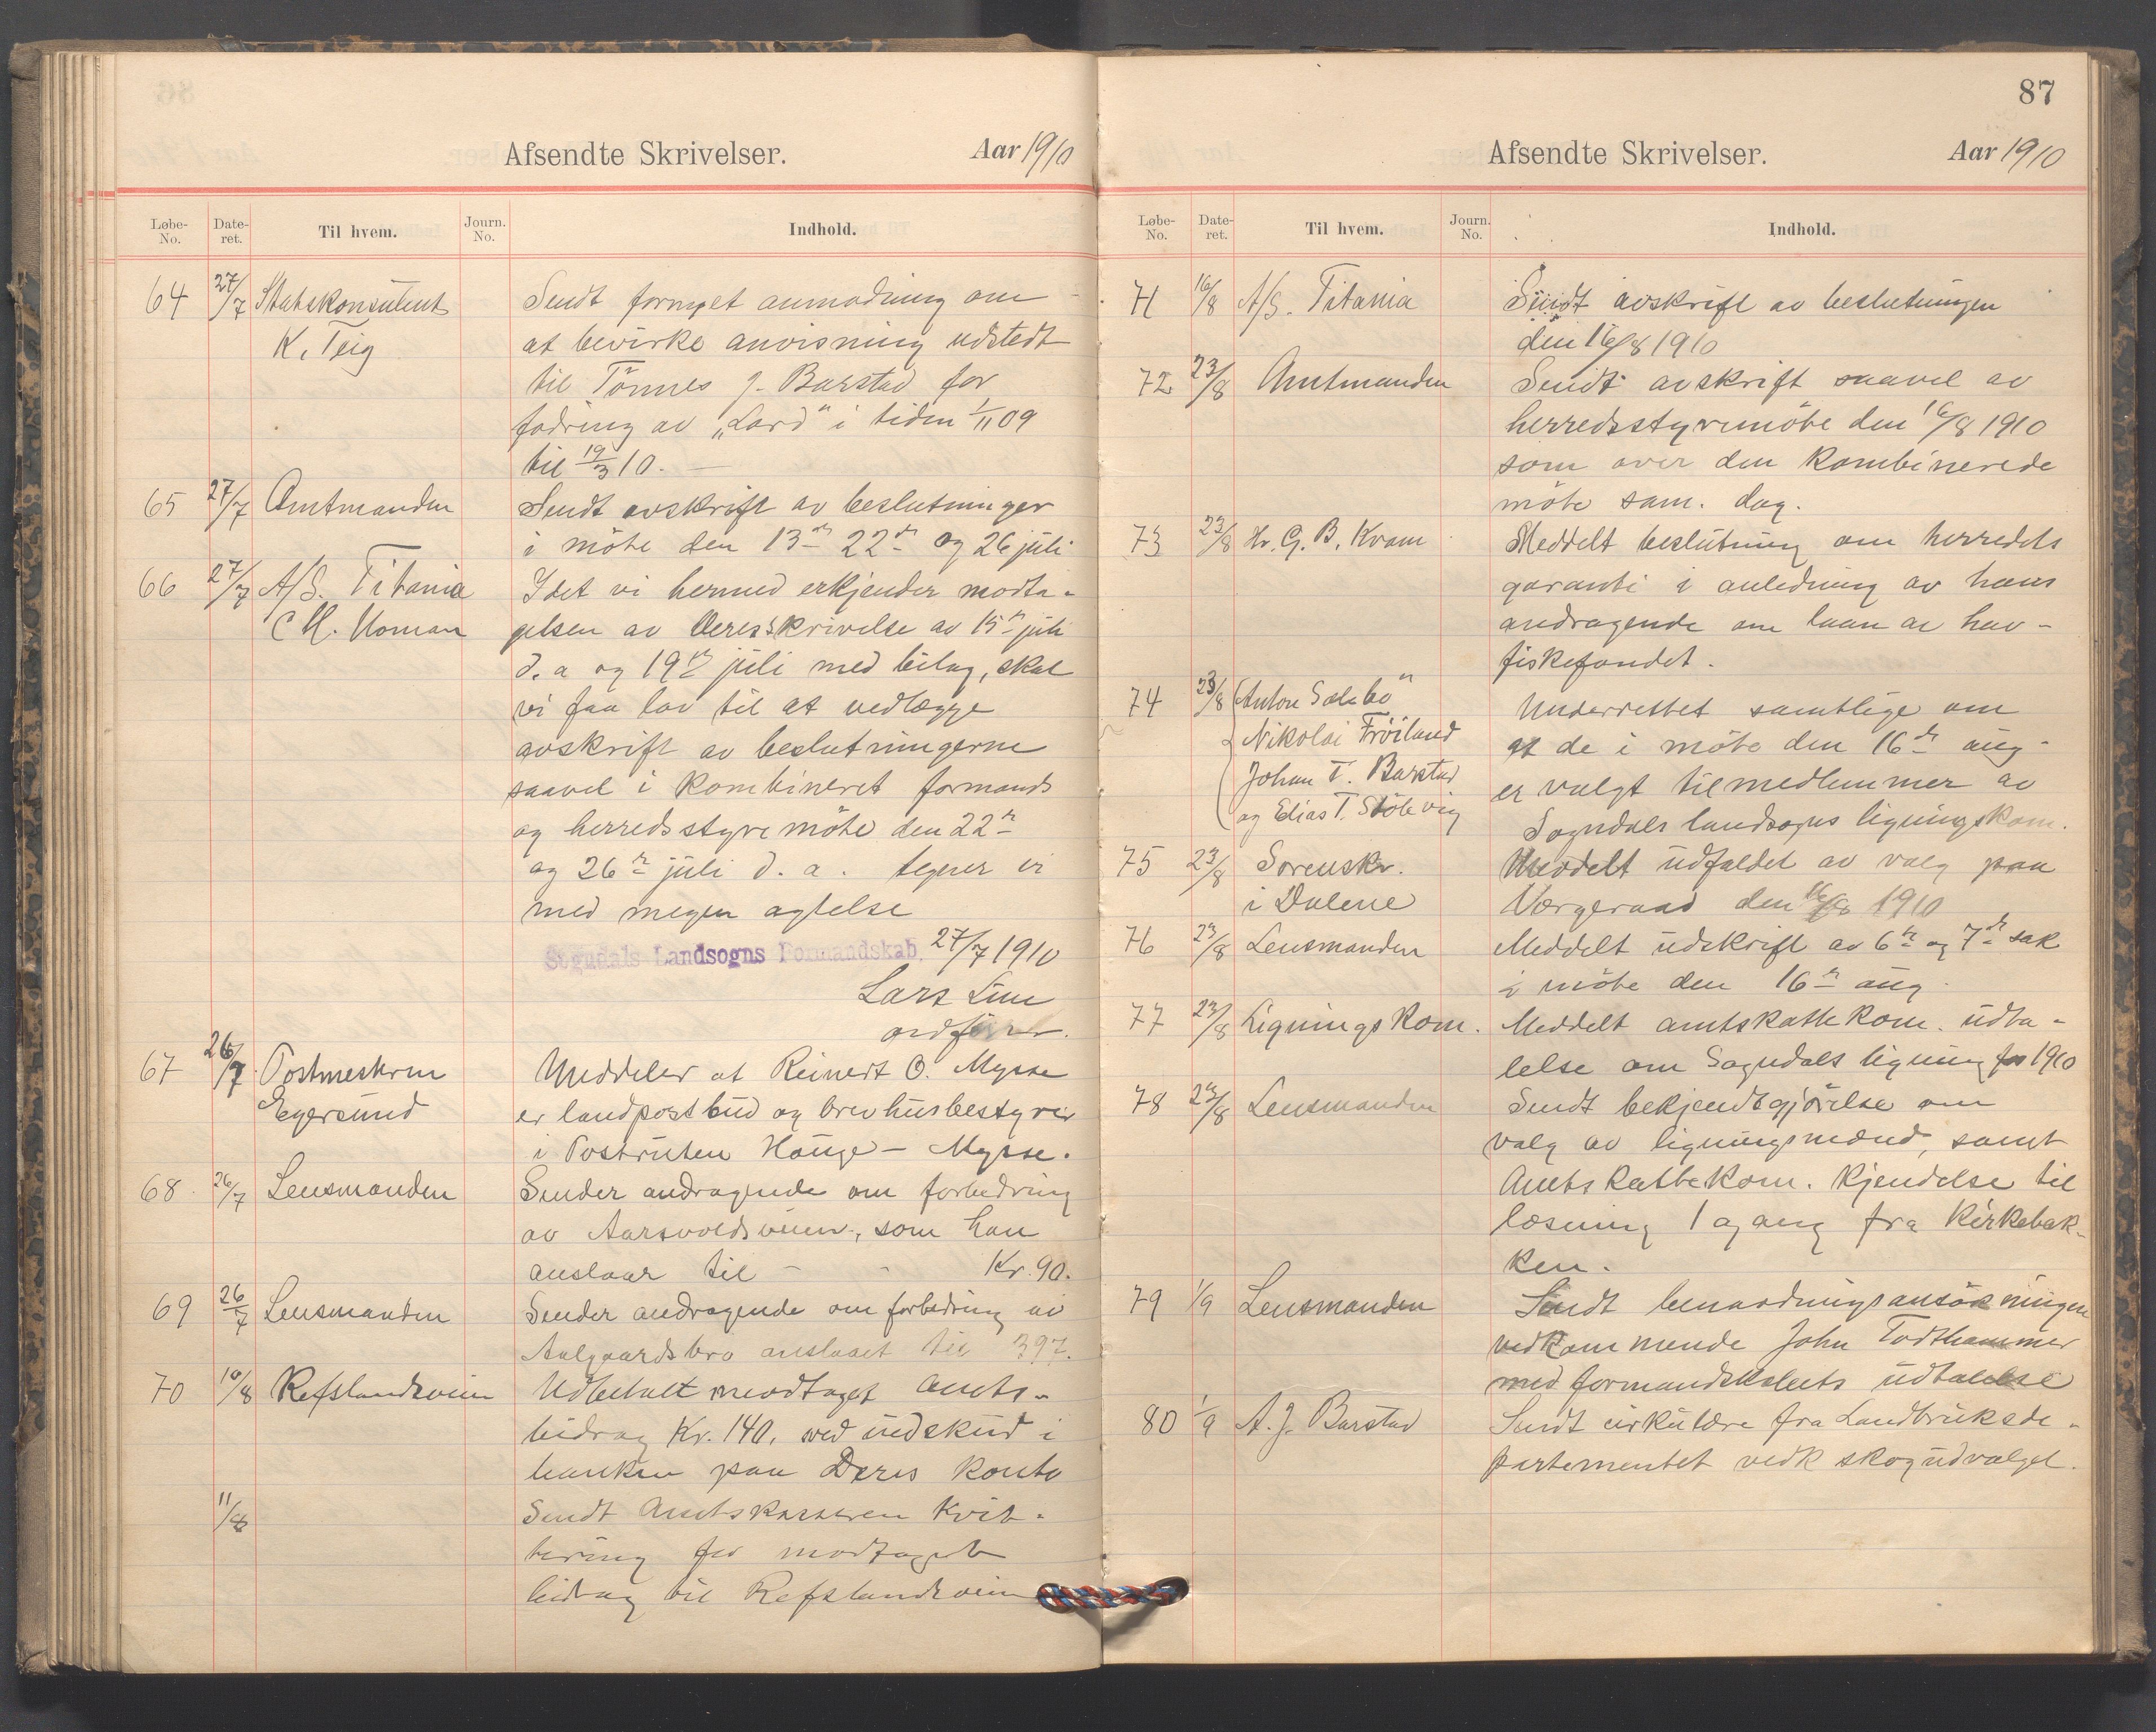 Afsendte Skrivelser. Aar 1910
Løbe-No. Date-ret. Til hvem. Journ. No. Indhold.
64 27/7 Statskonsulent Sendt fornyet anmodning om
K. Teig at bevirke anvisning udstedt
til Tönnes J. Barstad for
fodring av „Lard“ i tiden 1/11 09
til 19/3 10. —
65 27/7 Amtmanden Sendt avskrift av beslutninger
i möte den 13de 22de og 26 juli
66 27/7 A/S. Titania Idet vi hermed erkjender modta-
C M. Homan gelsen av Deres skrivelse av 15de juli
d. a og 19de juli med bilag, skal
vi faa lov til at vedlægge
avskrift av beslutningerne
saavel i kombineret formands
og herredsstyremöte den 22de
og 26de juli d. a. tegner vi
med megen agtelse
Sogndals Landsogns Formandskab, 27/7 1910
Lars Lune
ordförer.
67 26/7 Postmesteren Meddeler at Reinert O. Mysse
Egersund er landpostbud og brevhusbestyrer
i Postruten Hauge – Mysse.
68 26/7 Lensmanden Sender andragende om forbedring
av Aarsvoldsveien, som han
anslaar til - - Kr. 90.
69 26/7 Lensmanden Sender andragende om forbedring av
Aalgaardsbro anslaaet til 397.
70 10/8 Refslandsveien Udbetalt modtaget Amts-
bidrag Kr. 140, ved indskud i
banken paa Deres konto
11/8 Sendt Amtskasseren kvit-
tering for modtaget
bidrag til Refslandsveien
87
Afsendte Skrivelser. Aar 1910
Løbe-No. Date-ret. Til hvem. Journ. No. Indhold.
71 16/8 A/S. Titania Sendt avskrift av beslutningen
den 16/8 1910
72 23/8 Amtmanden Sendt avskrift saavel av
herredsstyremöte den 16/8 1910
som over den kombinerede
möte sam. dag.
73 23/8 Hr. G. B. Kvam Meddelt beslutning om herredets
garanti i anledning av hans
andragende om laan av hav-
fiskefondet.
74 23/8 Anton Salebö Underrettet samtlige om
Nikolai Fröiland at de i möte den 16de aug-
Johan T. Barstad er valgt til medlemmer av
og Elias T. Stölevig Sogndals landsogns ligningskom.
75 23/8 Sorenskr. Meddelt udfaldet av valg paa
i Dalene Værgeraad den 16/8 1910
76 23/8 Lensmanden Meddelt udskrift av 6te og 7de sak
i möte den 16de aug.
77 23/8 Ligningskom. Meddelt amtskattekom. udta-
lelse om Sogndals ligning for 1910
78 23/8 Lensmanden Sendt bekjendtgjörelse om
valg av ligningsmænd, samt
Amtsskattekom. kjendelse til
læsning 1 gang fra Kirkebak-
ken.
79 1/9 Lensmanden Sendt benaadningsansökningen
vedkommende John Todthammer
med formandskabets udtalelse
80 1/9 A. J. Barstad Sendt cirkulære fra Landbruksde-
partementet vedk skogudvalget.